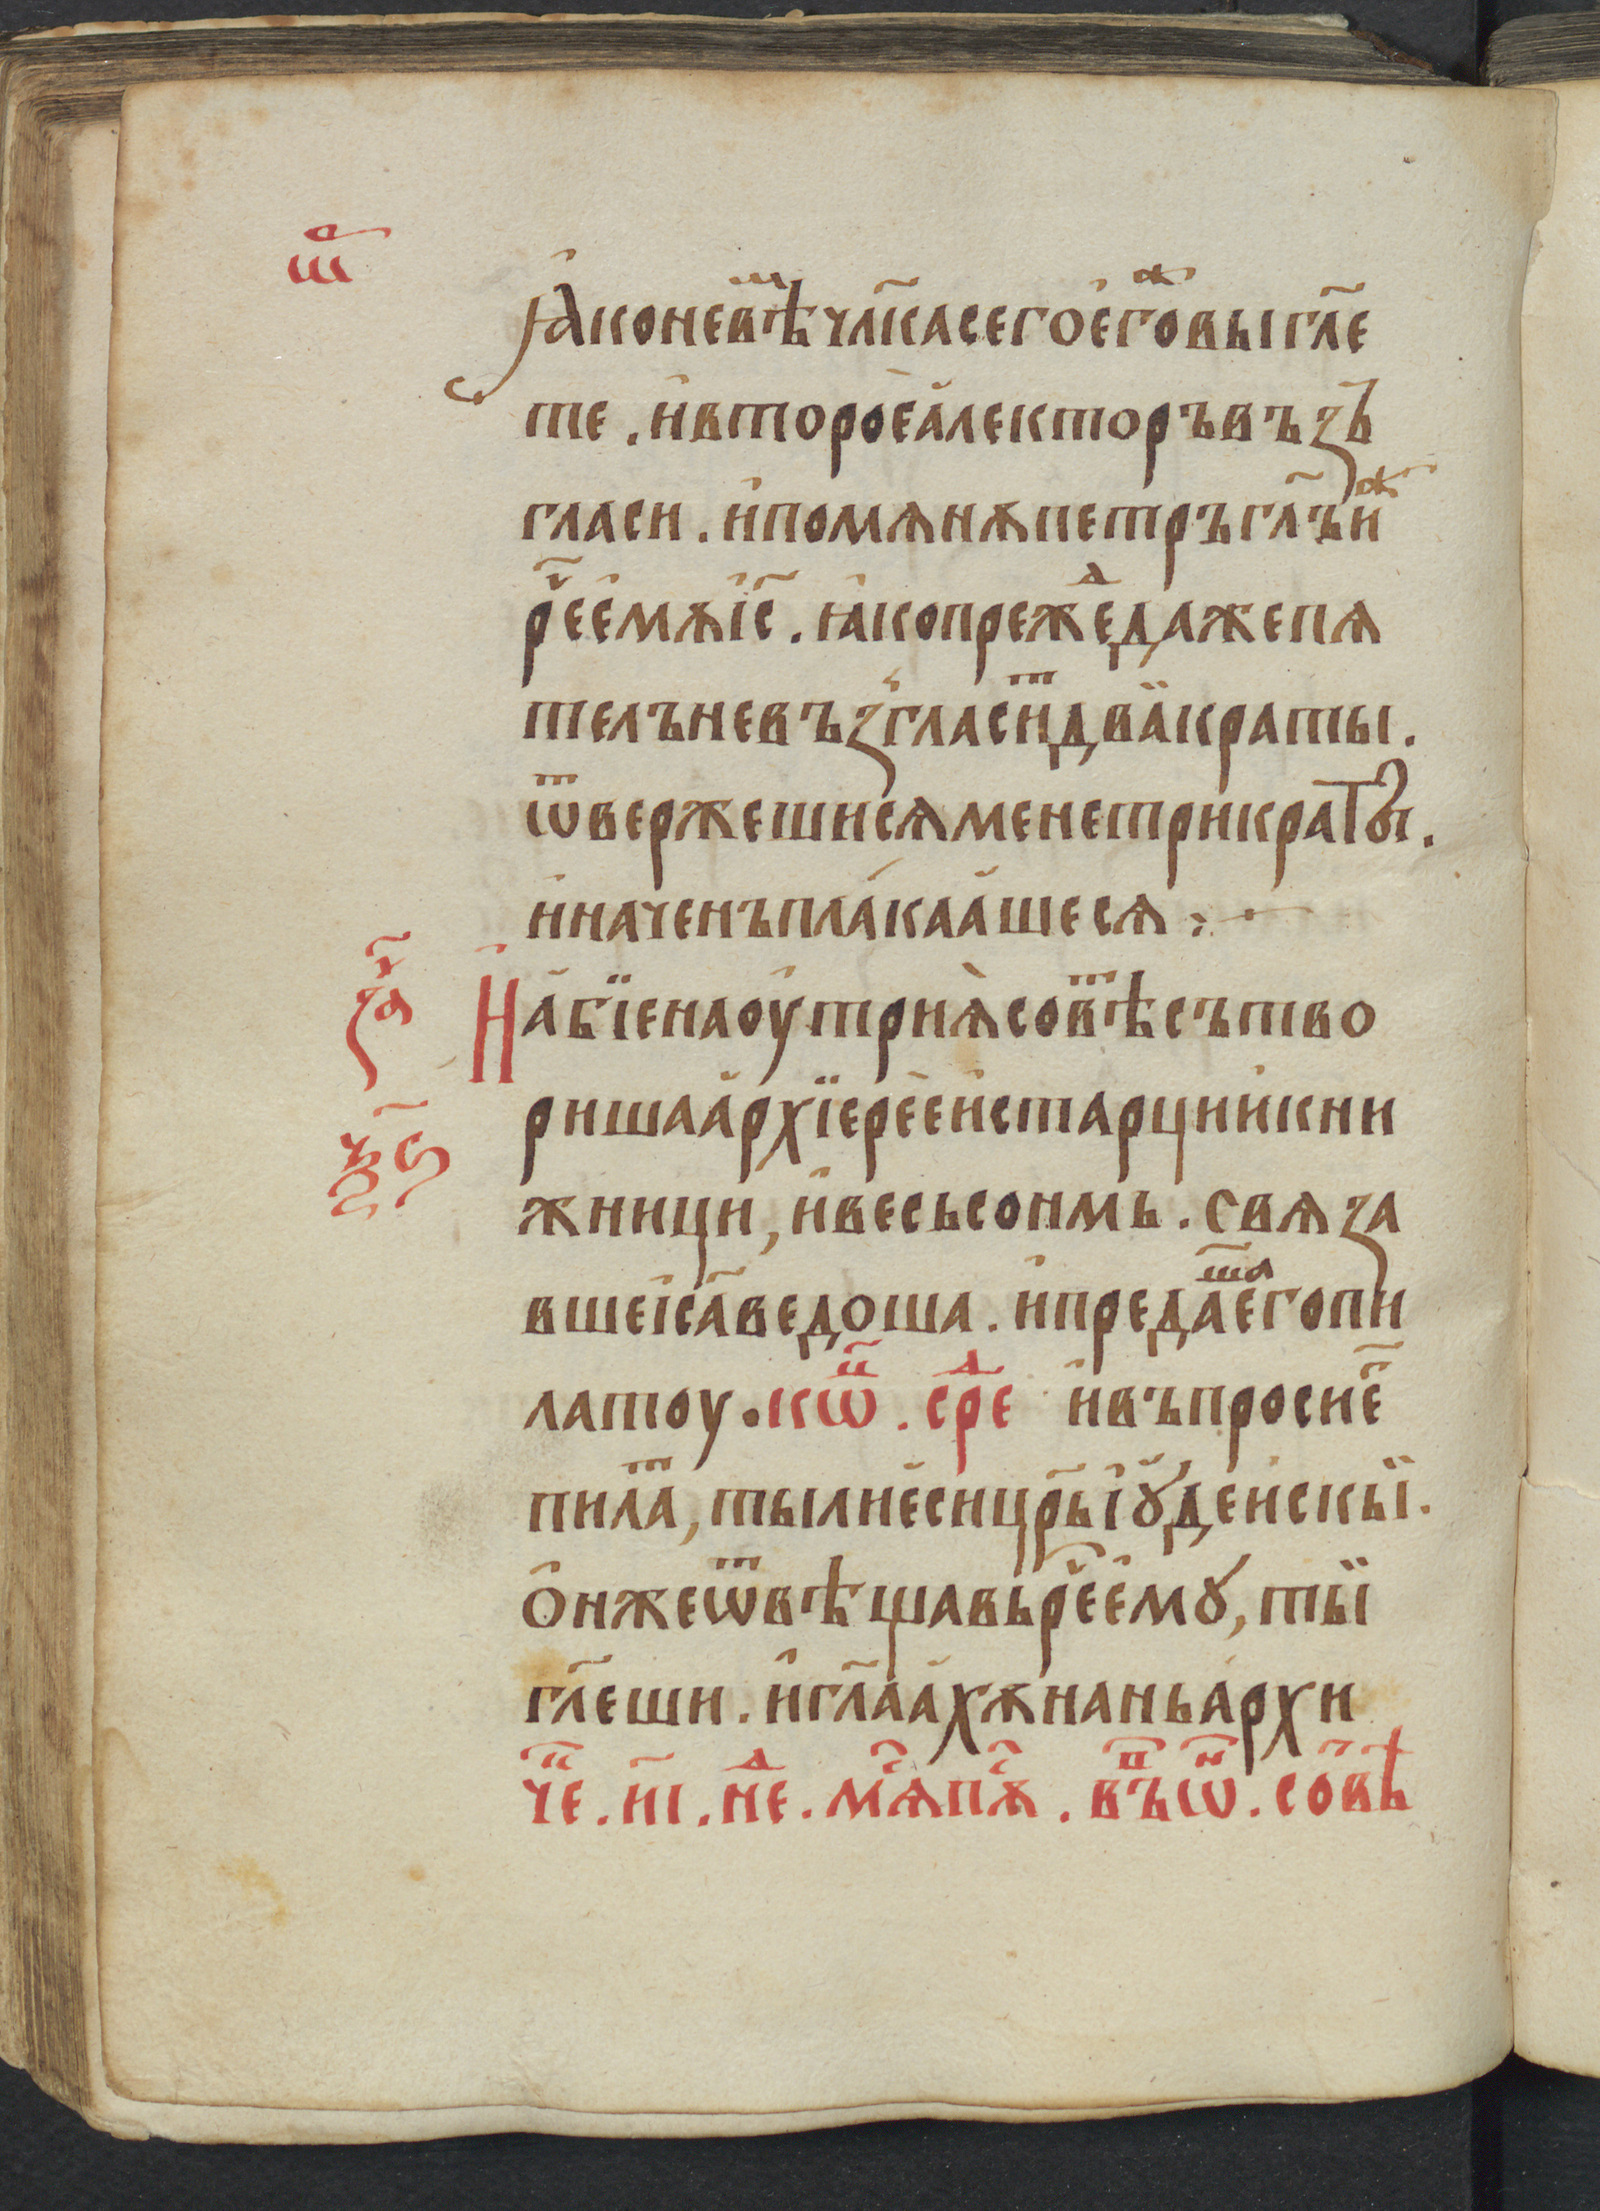 ꙗ҆коневⷨ҇ѣчл҃касегое҆гоⷤ҇выгл҃е
те . и҆второ́еа҆лекторъвъзъ
гласи . и҆помѧнѫпетръгл҃ъиⷤ҇
р҇ⷱее҆мѫі҆с҃ . ꙗ҆копрежеⷣ҇дажепѧ
телъневъꙁ̾гласиⷮ҇два̏краты .
ѿвержешисѧменетрикраты .
и҆наченъпла́каа҆шесѧ :·
И҆а҆бїенаоу҆трнѧ̀совⷮ҇ѣсътво
ришаа҆рхїере́еи҆старциикни
жници , и҆весьсонмь . свѧза
вшеі҆са҃ведоша . и҆предаⷲ҇аегопи
латоу . кѿⷰ҇ . среⷣ҇ и҆въпросие҃
пилаⷮ҇ , тылие҆сицр҃ьі҆ꙋ҆деи҆скы̏ .
О҆нжеѿвѣщавърⷱ҇ее҆мꙋ , ты̏
гл҃еши . и҆гл҃аа҆хѫнаньа҆рхи
чеⷧ҇ . н҃і . неⷣ҇ . мⷭ҇ѧпⷭ҇ѧ . вⷫ҇ъѡⷩ҇ . со҃вѣ